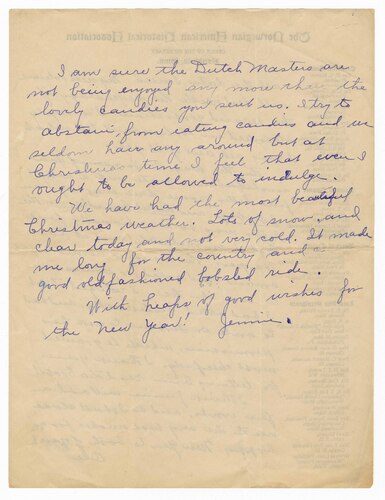 I am sure the Dutch Masters are
not being enjoyed any more then the
lovely candies you sent us. I try to
abstain from eating candies and we
seldom have any around but at
Christmas time I feel that even I
ought to be allowed to indulge.
We have had the most beautiful
Christmas weather. Lots of snow and
clear today and not very cold. It made
me long for the country and a
good oldfashioned bobsled ride.
With heaps of good wishes for
the New Year! Jennie.